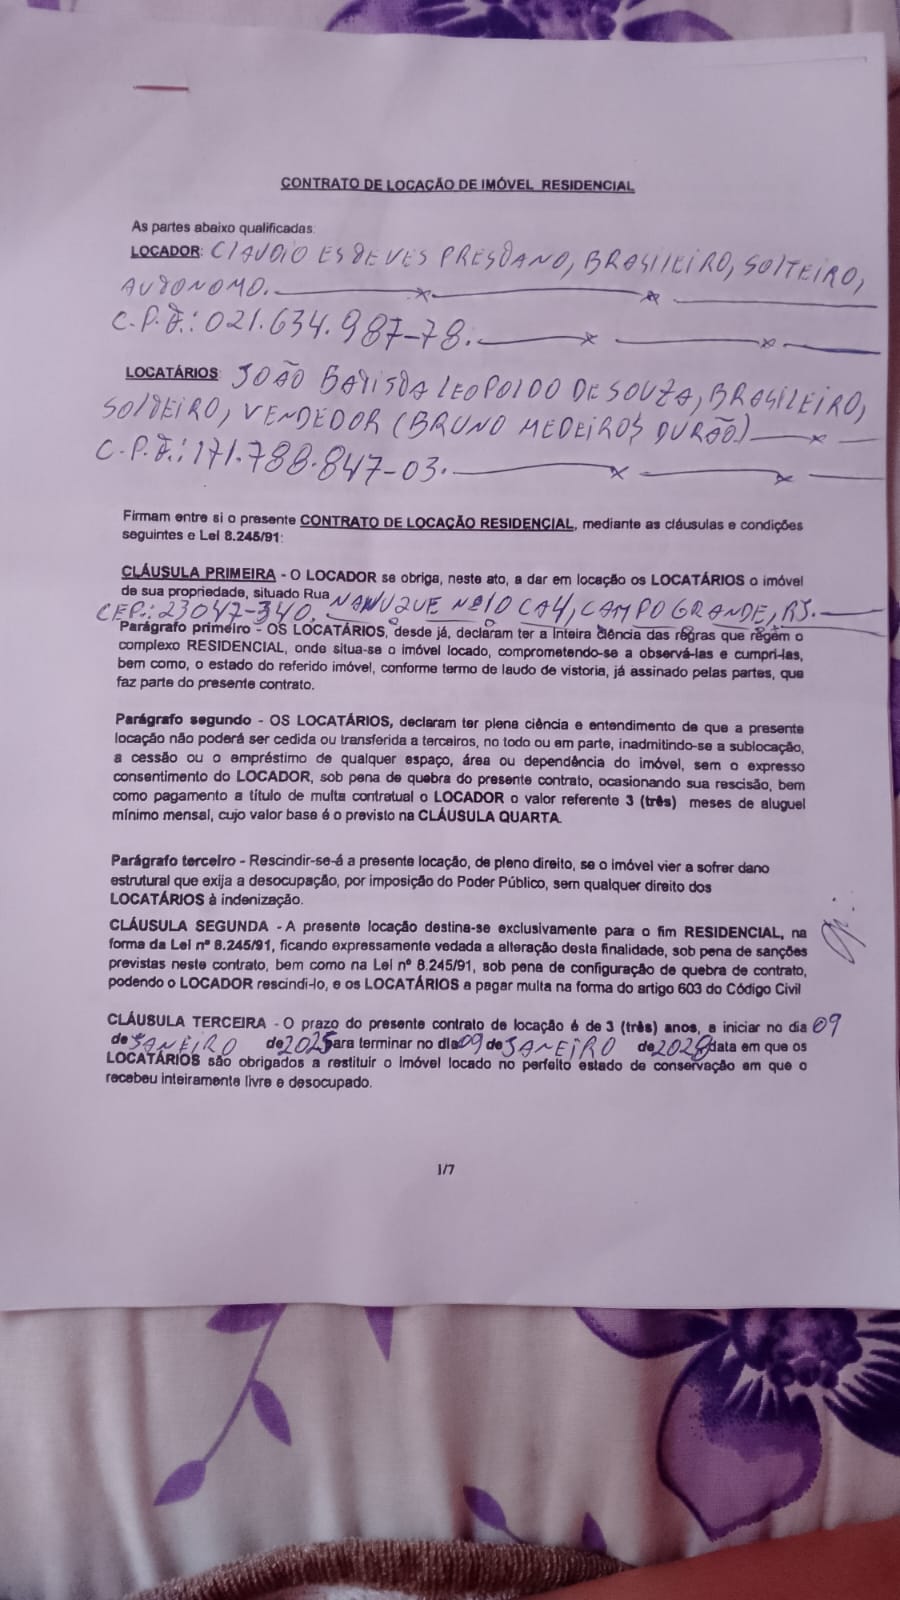 CONTRATO DE LOCAÇÃO DE IMÓVEL RESIDENCIAL
As partes abaixo qualificadas:
LOCADOR: CLAUDIO ESTEVES PRESTANO, BRASILEIRO, SOLTEIRO,
AUTONOMO.
C.P.F.: 021.634.987-78.
LOCATÁRIOS: JOÃO BATISTA LEOPOLDO DE SOUZA, BRASILEIRO,
SOLTEIRO, VENDEDOR (BRUNO MEDEIROS DURÃO)
C.P.F.: 171.788.847-03.
Firmam entre si o presente CONTRATO DE LOCAÇÃO RESIDENCIAL, mediante as cláusulas e condições
seguintes e Lei 8.245/91:
CLÁUSULA PRIMEIRA - O LOCADOR se obriga, neste ato, a dar em locação os LOCATÁRIOS o imóvel
de sua propriedade, situado Rua NANUQUE Nº 10 CA4, CAMPO GRANDE, RJ.
CEP.: 23047-340.
Parágrafo primeiro - OS LOCATÁRIOS, desde já, declaram ter a inteira ciência das regras que regem o
complexo RESIDENCIAL, onde situa-se o imóvel locado, comprometendo-se a observá-las e cumpri-las,
bem como, o estado do referido imóvel, conforme termo de laudo de vistoria, já assinado pelas partes, que
faz parte do presente contrato.
Parágrafo segundo - OS LOCATÁRIOS, declaram ter plena ciência e entendimento de que a presente
locação não poderá ser cedida ou transferida a terceiros, no todo ou em parte, inadmitindo-se a sublocação,
a cessão ou o empréstimo de qualquer espaço, área ou dependência do imóvel, sem o expresso
consentimento do LOCADOR, sob pena de quebra do presente contrato, ocasionando sua rescisão, bem
como pagamento a título de multa contratual o LOCADOR o valor referente 3 (três) meses de aluguel
mínimo mensal, cujo valor base é o previsto na CLÁUSULA QUARTA.
Parágrafo terceiro - Rescindir-se-á a presente locação, de pleno direito, se o imóvel vier a sofrer dano
estrutural que exija a desocupação, por imposição do Poder Público, sem qualquer direito dos
LOCATÁRIOS à indenização.
CLÁUSULA SEGUNDA - A presente locação destina-se exclusivamente para o fim RESIDENCIAL, na
forma da Lei nº 8.245/91, ficando expressamente vedada a alteração desta finalidade, sob pena de sanções
previstas neste contrato, bem como na Lei nº 8.245/91, sob pena de configuração de quebra de contrato,
podendo o LOCADOR rescindi-lo, e os LOCATÁRIOS a pagar multa na forma do artigo 603 do Código Civil
CLÁUSULA TERCEIRA - O prazo do presente contrato de locação é de 3 (três) anos, a iniciar no dia 09
de JANEIRO de 2025 para terminar no dia 09 de JANEIRO de 2028 data em que os
LOCATÁRIOS são obrigados a restituir o imóvel locado no perfeito estado de conservação em que o
recebeu inteiramente livre e desocupado.
1/7